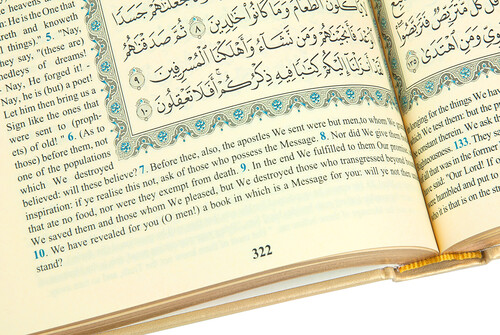 heavens
He is the One that
areth and knows
l things)." 5. "Nay,
ey say, "(these are)
nedleys of dreams!
Nay, He forged it! -
Nay, he is (but) a poet!
Let him then bring us a
Sign like the ones that
were sent to (proph-
ets) of old!" 6. (As to
those) before them, not
one of the populations
which We destroyed
believed: will these believe? 7. Before thee, also, the apostles We sent were but men,to whom We
inspiration: if ye realise this not, ask of those who possess the Message. 8. Nor did We give them
that ate no food, nor were they exempt from death. 9. In the end We fulfilled to them Our
We saved them and those whom We pleased, but We destroyed those who transgressed beyond
10. We have revealed for you (O men!) a book in which is a Message for you: will ye not then
stand?
322
لَّا يَأْكُلُونَ الطَّعَامَ وَمَا كَانُوا خَالِدِينَ ٨ ثُمَّ صَدَقْنَاهُمُ
الْوَعْدَ فَأَنجَيْنَاهُمْ وَمَن نَّشَاءُ وَأَهْلَكْنَا الْمُسْرِفِينَ ٩
لَقَدْ أَنزَلْنَا إِلَيْكُمْ كِتَابًا فِيهِ ذِكْرُكُمْ أَفَلَا تَعْقِلُونَ ١٠
وَمَنِ اهْتَدَىٰ ١٣٥
longing for the things We have
We test them: but the
constant therein. We ask thee
righteousness. 133. They say
all that was in the former
say: "Our Lord! If
were humbled and put to
who it is that is on the